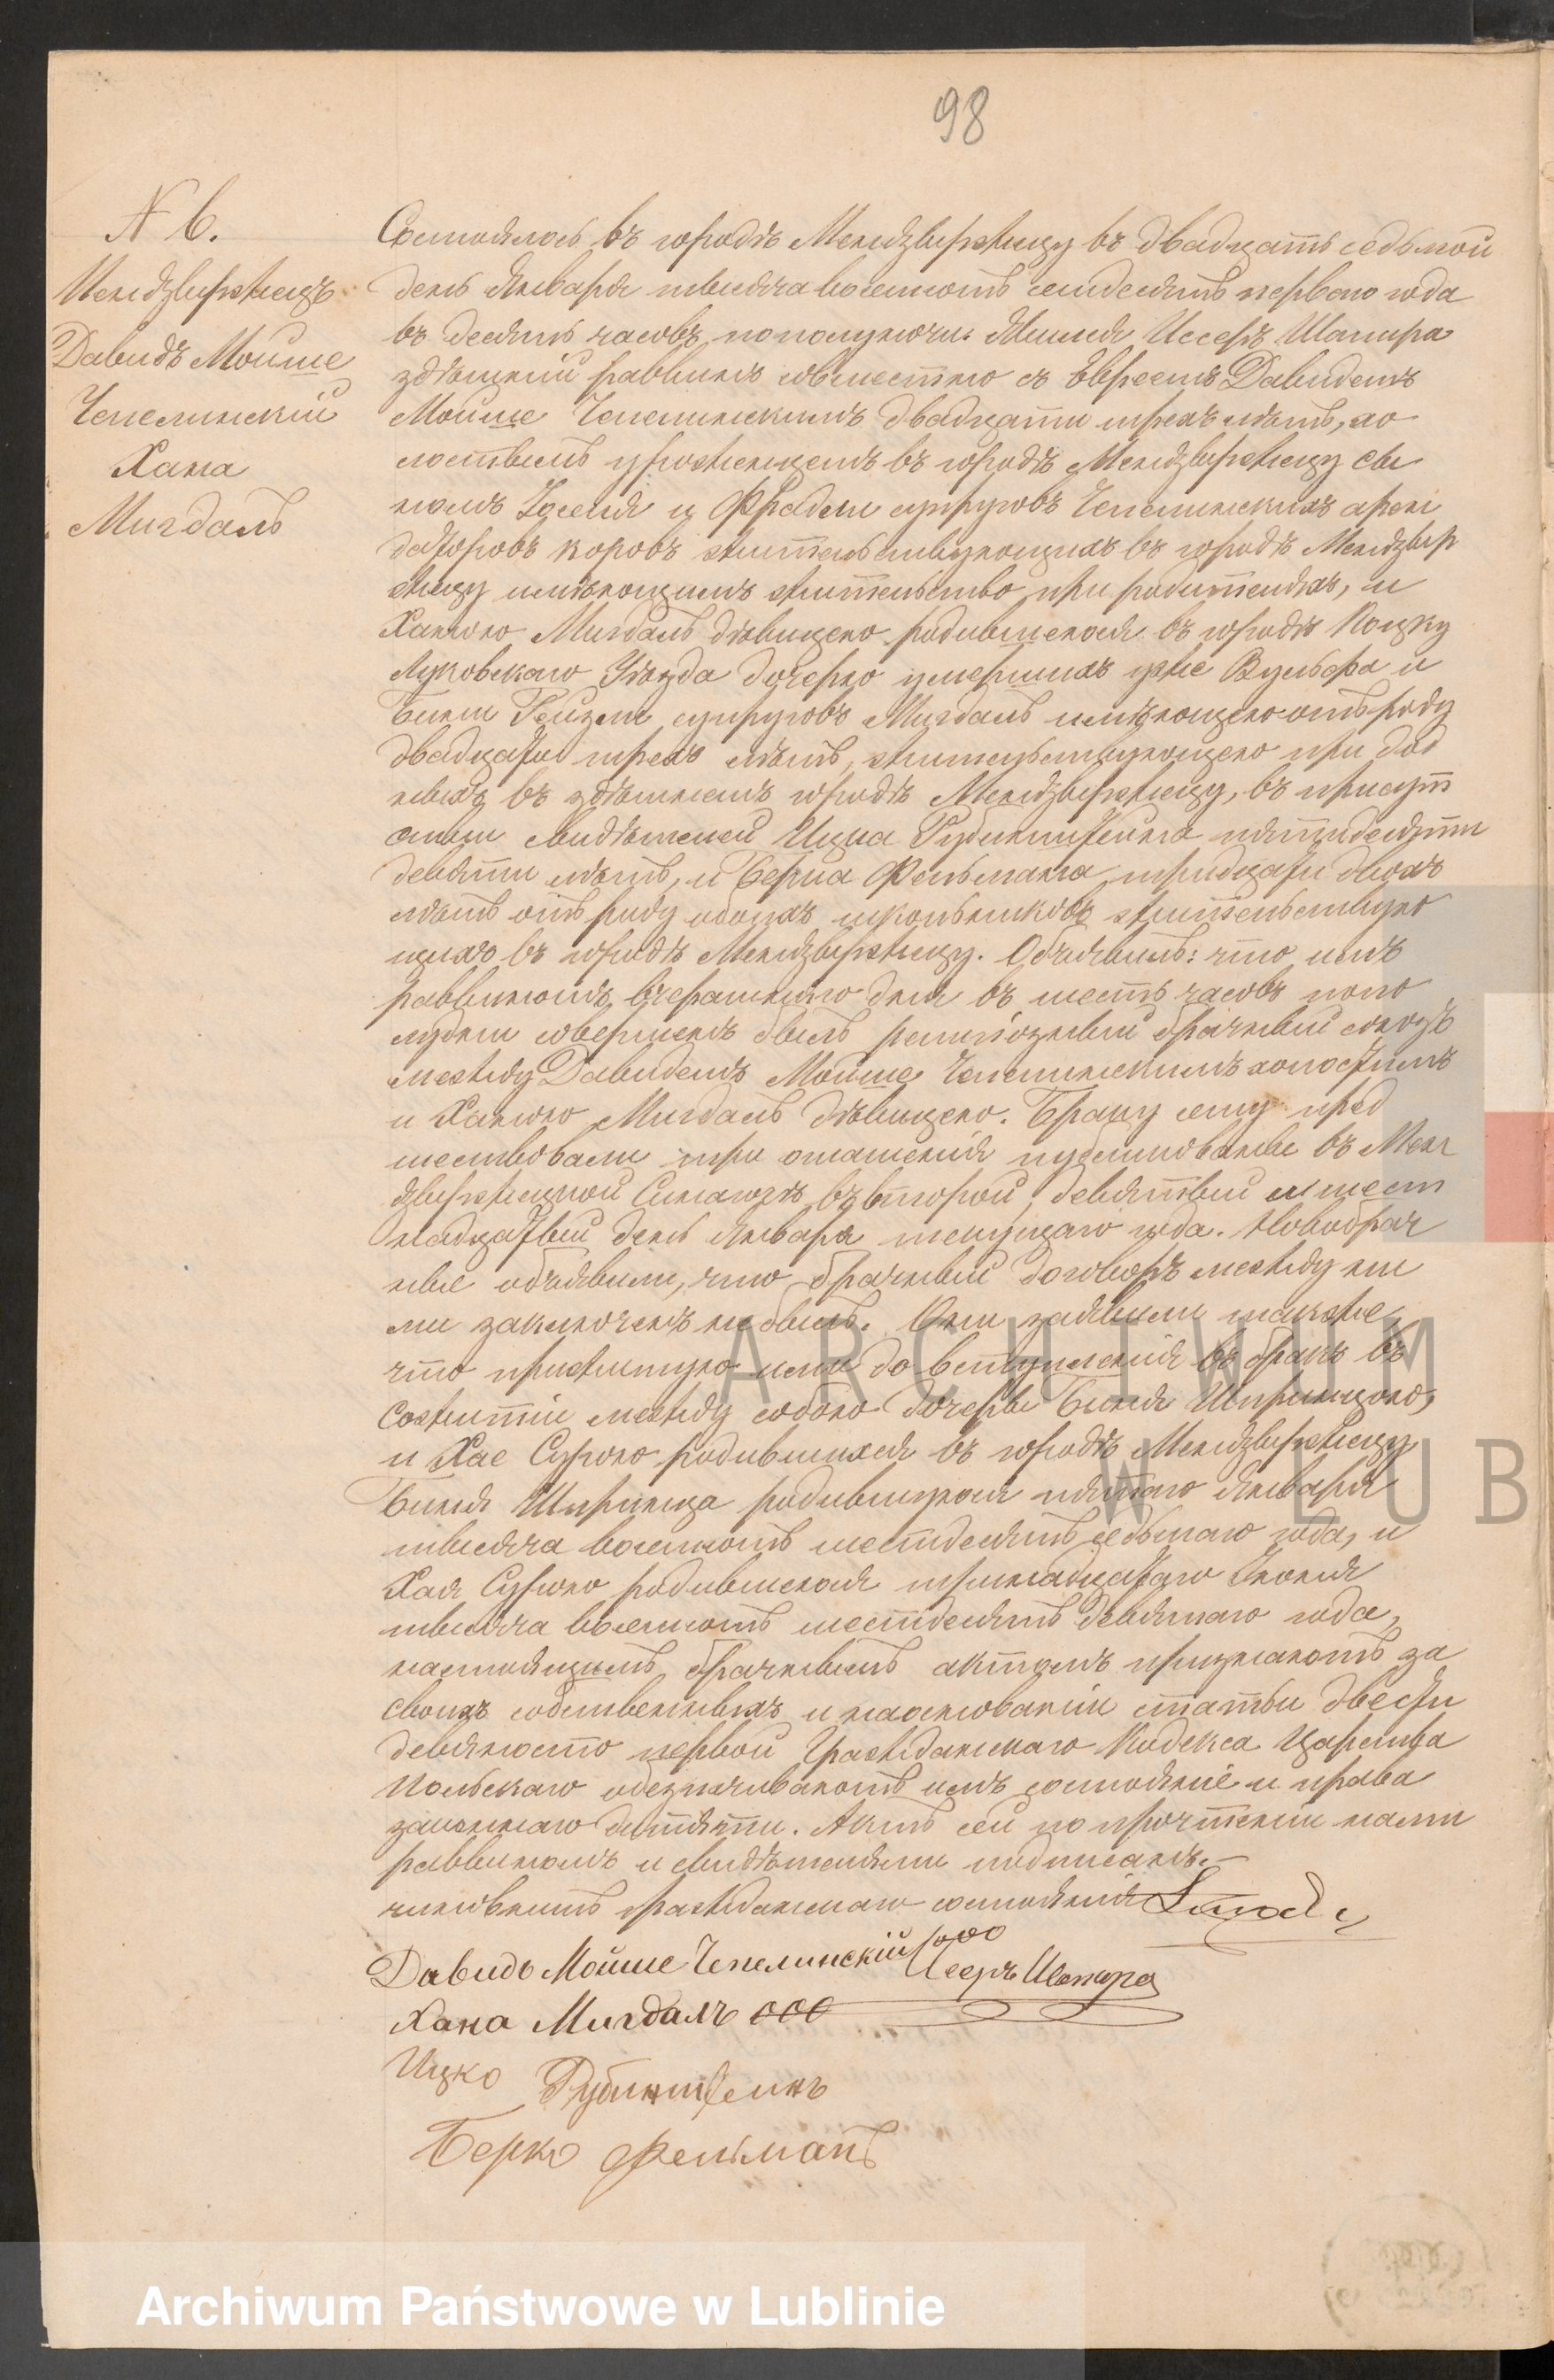 98
N 6.
Мендзвиржецъ
Давидъ Мойше
Чепелинскій
Хана
Мигдаль
Состоялось въ городѣ Мендзвиржецу въ двадцать седьмой
день Января тысяча восемьсотъ семдесятъ перваго года
въ десять часовъ пополуночи. Иссеръ Шапира
здѣшній раввинъ совместно съ Евреемъ Давидемъ
Мойше Чепелинскимъ двадцати трехъ лѣтъ, хо
лостымъ урожденцемъ въ городѣ Мендзвиржецу сы
номъ и Фрадли супруговъ Чепелинскихъ арен
даторовъ коровъ жительствующихъ въ городѣ Мендзвир
жецу имѣющимъ жительство при родителяхъ, и
Ханою Мигдаль дѣвицею родившеюся въ городѣ Коцку
Луковскаго Уѣзда дочерью умершихъ уже Вульфа и
Бини Рейзли супруговъ Мигдаль имѣющею отъ роду
двадцати трехъ лѣтъ, жительствующею при род
ныхъ въ здѣшнемъ городѣ Мендзвиржецу, въ присут
ствіи свидѣтелей Ицка Рубинштейна пятидесяти
девяти лѣтъ, и Берка Фельмана тридцати двохъ
лѣтъ отъ роду обоихъ школьниковъ жительствую
щихъ въ городѣ Мендзвиржецу. Объявилъ: что имъ
раввиномъ вчерашнего дня въ шесть часовъ попо
лудни совершенъ былъ религіозный брачный союзъ
между Давидемъ Мойше Чепелинскимъ холостымъ
и Ханою Мигдаль дѣвицею. Браку сему пред
шествовали три оглашенія публикованые въ Мен
дзвиржецкой Синагогѣ въ второй, девятый и шест
надцатый день Января текущаго года. Новобрач
ные объявили, что брачный договоръ между ни
ми заключенъ небылъ. Они заявили также
что прижитую ими до вступленія въ бракъ въ
сожитіи между собою дочеры Биня Ширинцою,
и Хае Сурою родившихся въ городѣ Мендзвиржецу
Биня Ширинца родившуюся пятаго Января
тысяча восемьсотъ шестдесятъ седьмаго года, и
Хая Сурою родившеюся тринадцатаго Іюня
тысяча восемьсотъ шестдесятъ девятаго года,
настоящимъ брачнымъ актомъ признаютъ за
своихъ собственныхъ и наоснованіи статьи двести
девяносто первой Гражданскаго Кодекса Царства
Польскаго обезпечиваютъ имъ состояніе и права
законнаго дитяти. Актъ сей по прочтеніи нами
раввиномъ и свидѣтелями подписанъ.—
чиновникъ гражданскаго состоянія
Давидъ Мойше Чепелинскій ооо Исеръ Шапира
Хана Мигдалъ ооо
Ицко Рубинштеинъ
Берко Фельманъ
ARCHIWUM
W LUB
Archiwum Państwowe w Lublinie